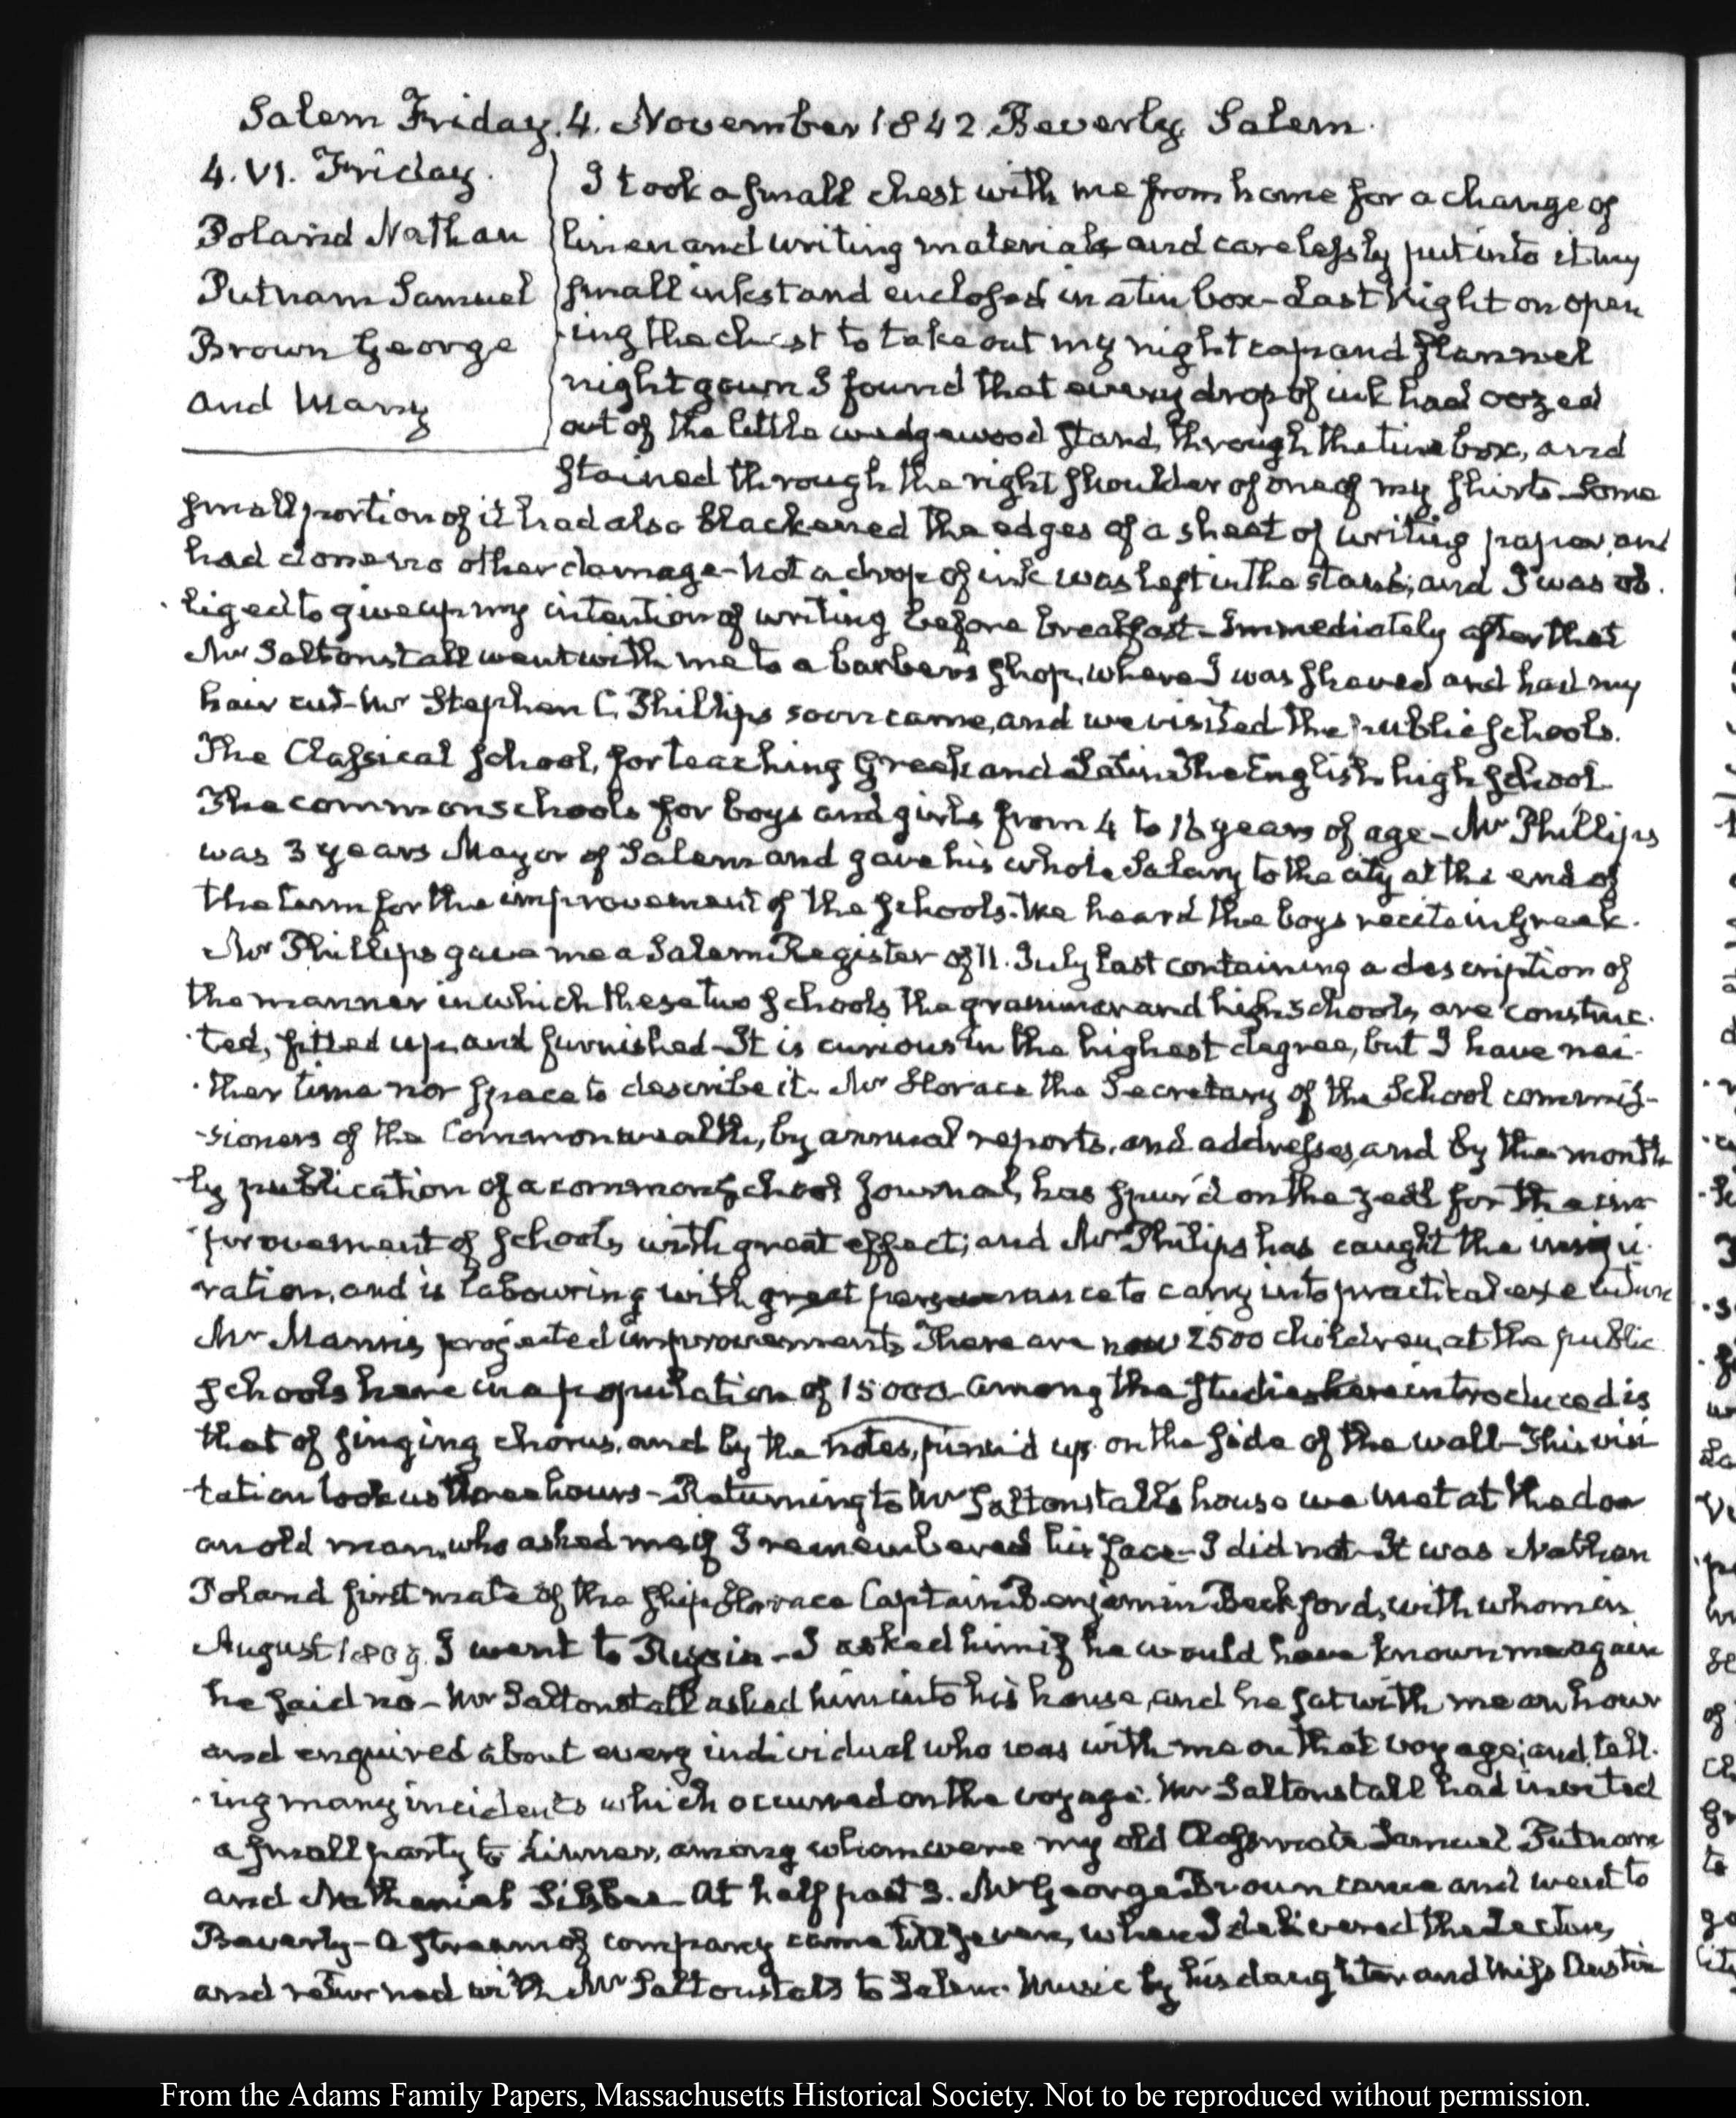 Salem Friday 4. November 1842 Beverly Salem.
4. VI. Friday.
Poland Nathan
Putnam Samuel
Brown George
and Mary
I took a small chest with me from home for a change of
linen and writing materials and carelessly put into it my
small inkstand enclosed in a tin box - Last Night on open
ing the chest to take out my night cap and flannel
night gown I found that every drop of ink had oozed
out of the little wedgewood stand, through the tin box, and
stained through the right shoulder of one of my shirts. Some
small portion of it had also blackened the edges of a sheet of writing paper, and
had done no other damage - Not a drop of ink was left in the stand; and I was ob.
liged to give up my intention of writing before breakfast - Immediately after that
Mr Saltonstall went with me to a barber's shop, where I was shaved and had my
hair cut - Mr Stephen C. Phillips soon came, and we visited the public schools.
The Classical School, for teaching Greek and Latin The English high school
The common schools for boys and girls from 4 to 16 years of age - Mr Phillips
was 3 years Mayor of Salem and gave his whole Salary to the city at the end of
the term for the improvement of the schools. We heard the boys recite in Greek.
Mr Phillips gave me a Salem Register of 11. July last containing a description of
the manner in which these two schools the grammar and high schools, are construc.
ted, fitted up, and furnished - It is curious in the highest degree, but I have nei-
ther time nor space to describe it. Mr Horace the Secretary of the School commis-
-sioners of the Commonwealth, by annual reports, and addresses, and by the month
ly publication of a common school Journal, has spur'd on the zeal for the im
provement of schools, with great effect; and Mr Philips has caught the inspi.
ration, and is labouring with great perseverance to carry into practical execution
Mr Mann's projected improvements There are now 2500 children, at the public
schools here in a population of 15000 - Among the studies here introduced is
that of singing chorus, and by the notes, pinn'd up on the side of the wall - This visi
tation took us three hours - Returning to Mr Saltonstall's house we met at the door
an old man, who asked me if I remembered his face - I did not - It was Nathan
Poland first mate of the ship Horace Captain Benjamin Beckford, with whom in
August 1809. I went to Russia - I asked him if he would have known me again
he said no - Mr Saltonstall asked him into his house, and he sat with me an hour
and enquired about every individual who was with me on that voyage; and tell.
ing many incidents which occurred on the voyage. Mr Saltonstall had invited
a small party to dinner, among whom were my old Classmate Samuel Putnam
and Nathaniel Silsbee - At half past 3. Mr George Brown came and went to
Beverly - A stream of company came till seven, when I delivered the Lecture,
and returned with Mr Saltonstall to Salem. Music by his daughter and Miss Austin
From the Adams Family Papers, Massachusetts Historical Society. Not to be reproduced without permission.